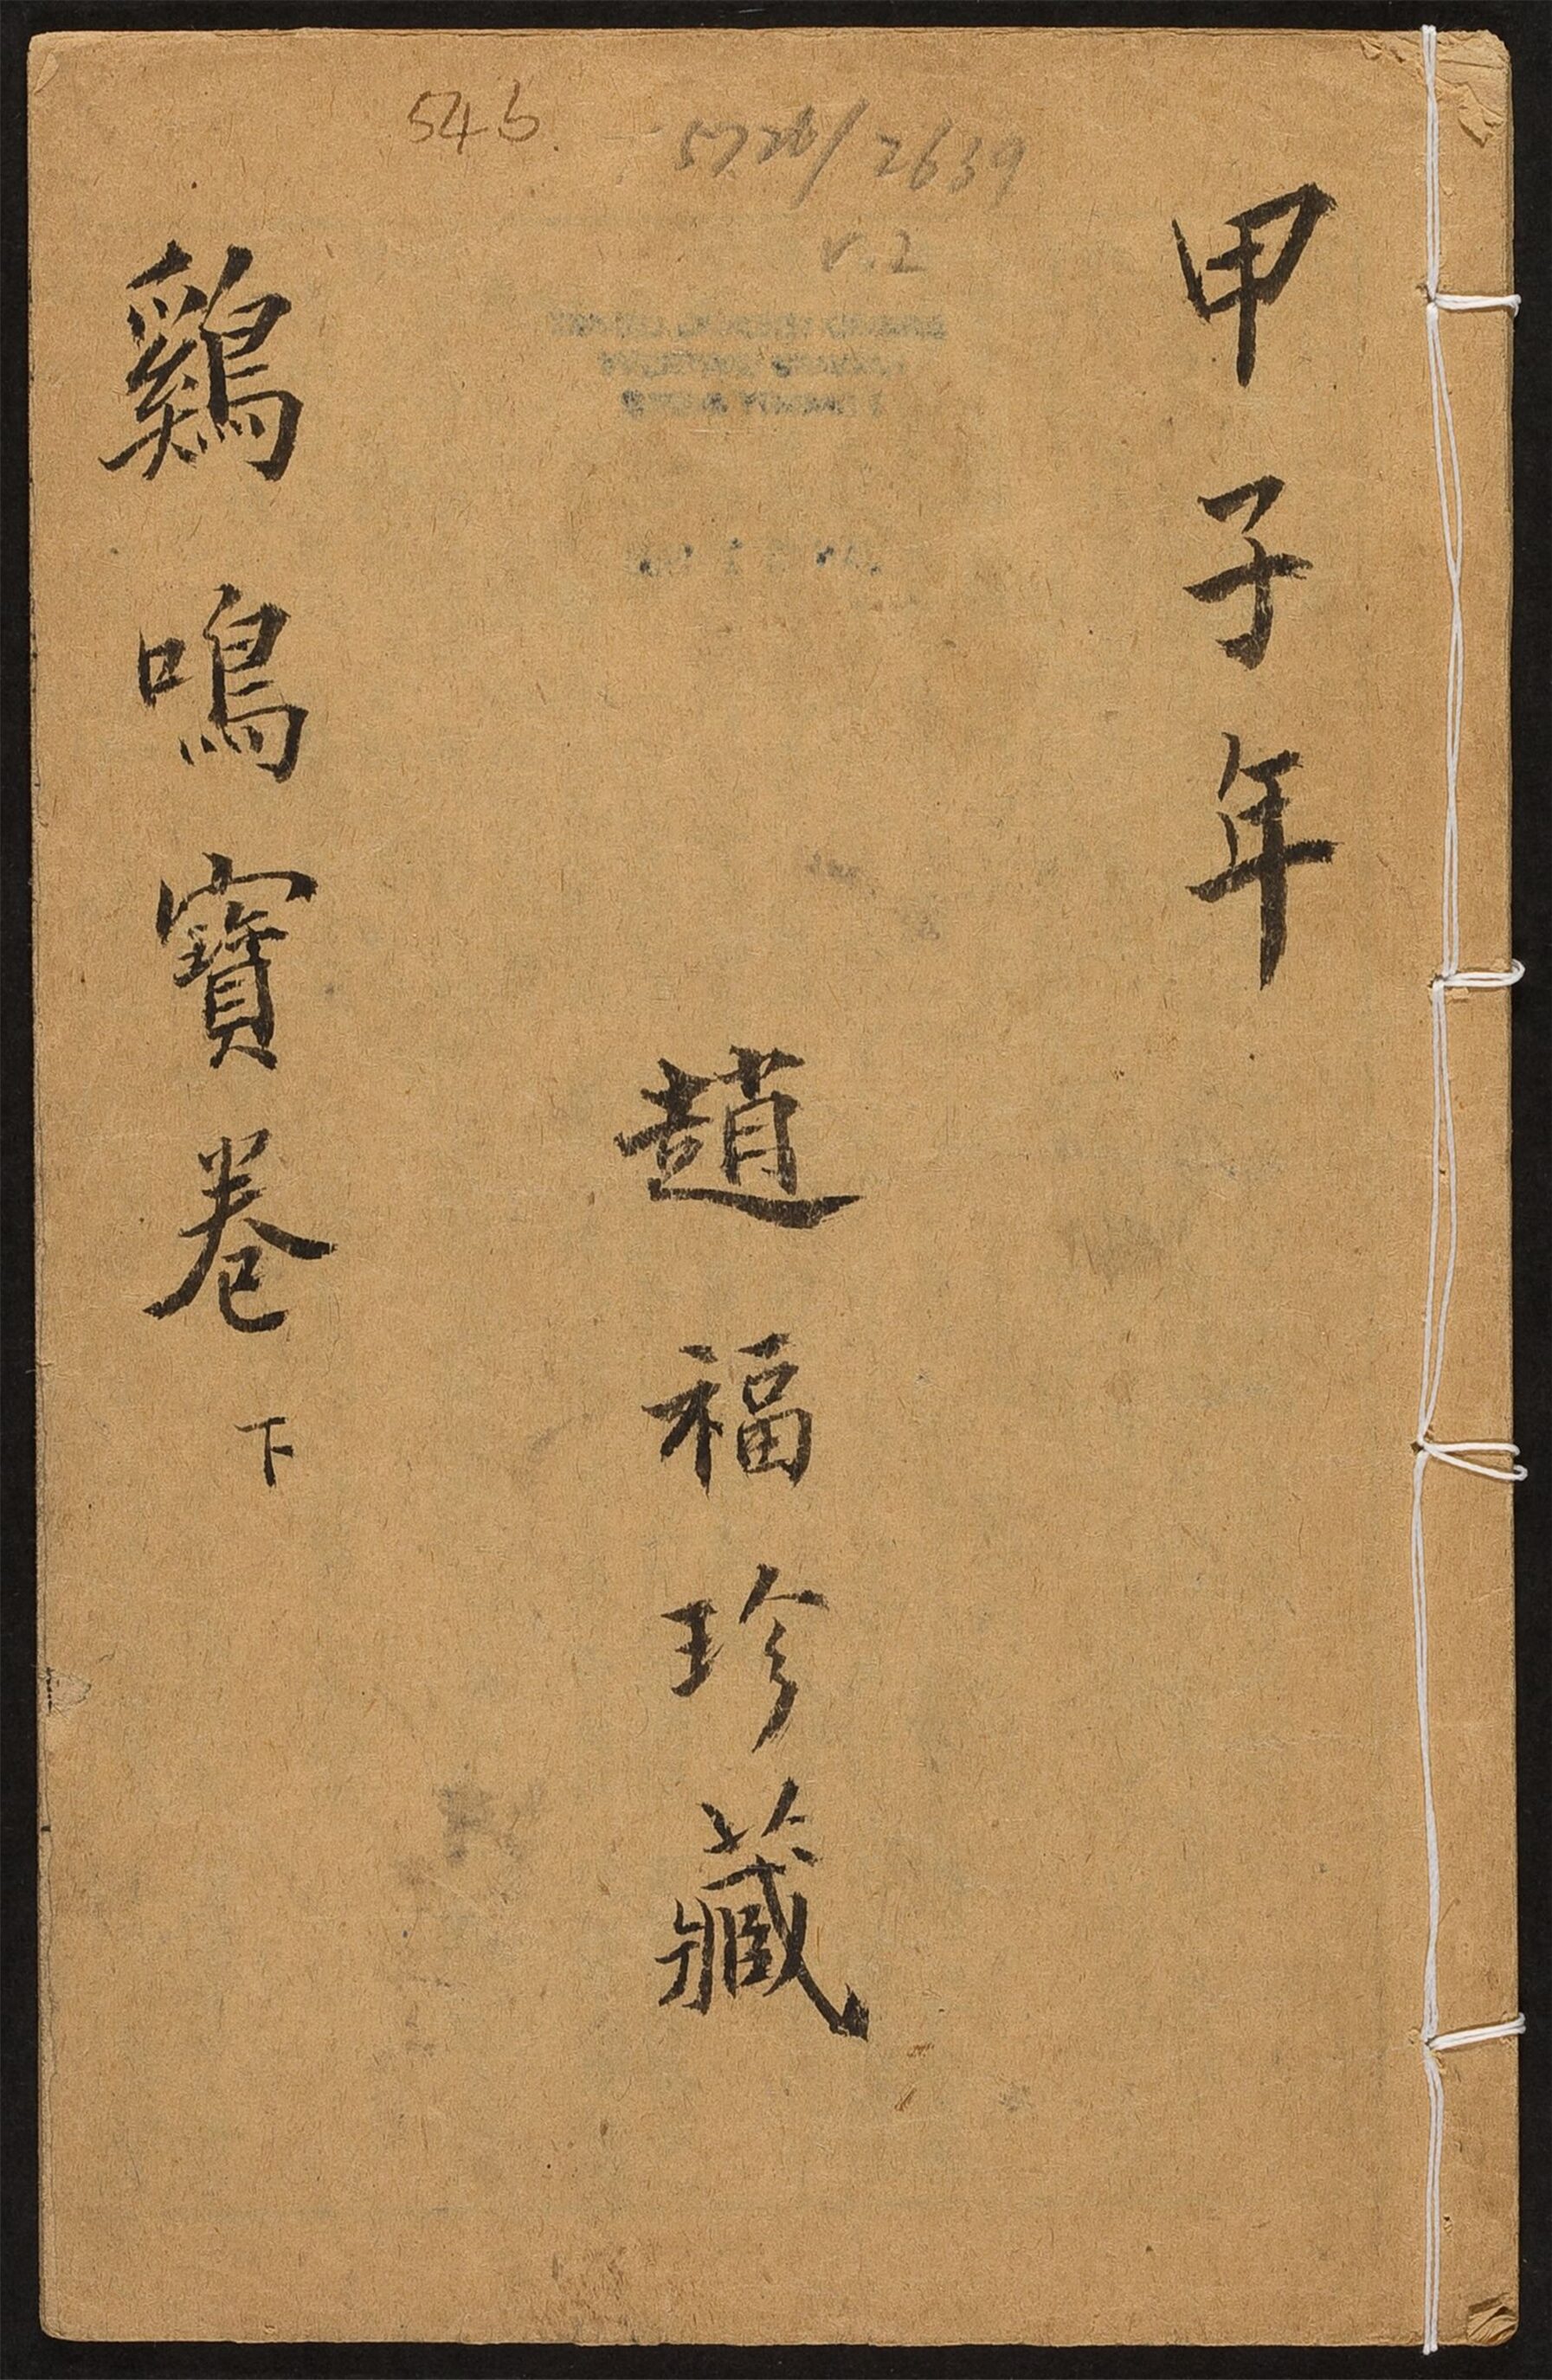 546
5726/2639
v.2
甲子年
趙福珍藏
鷄鳴寳卷下